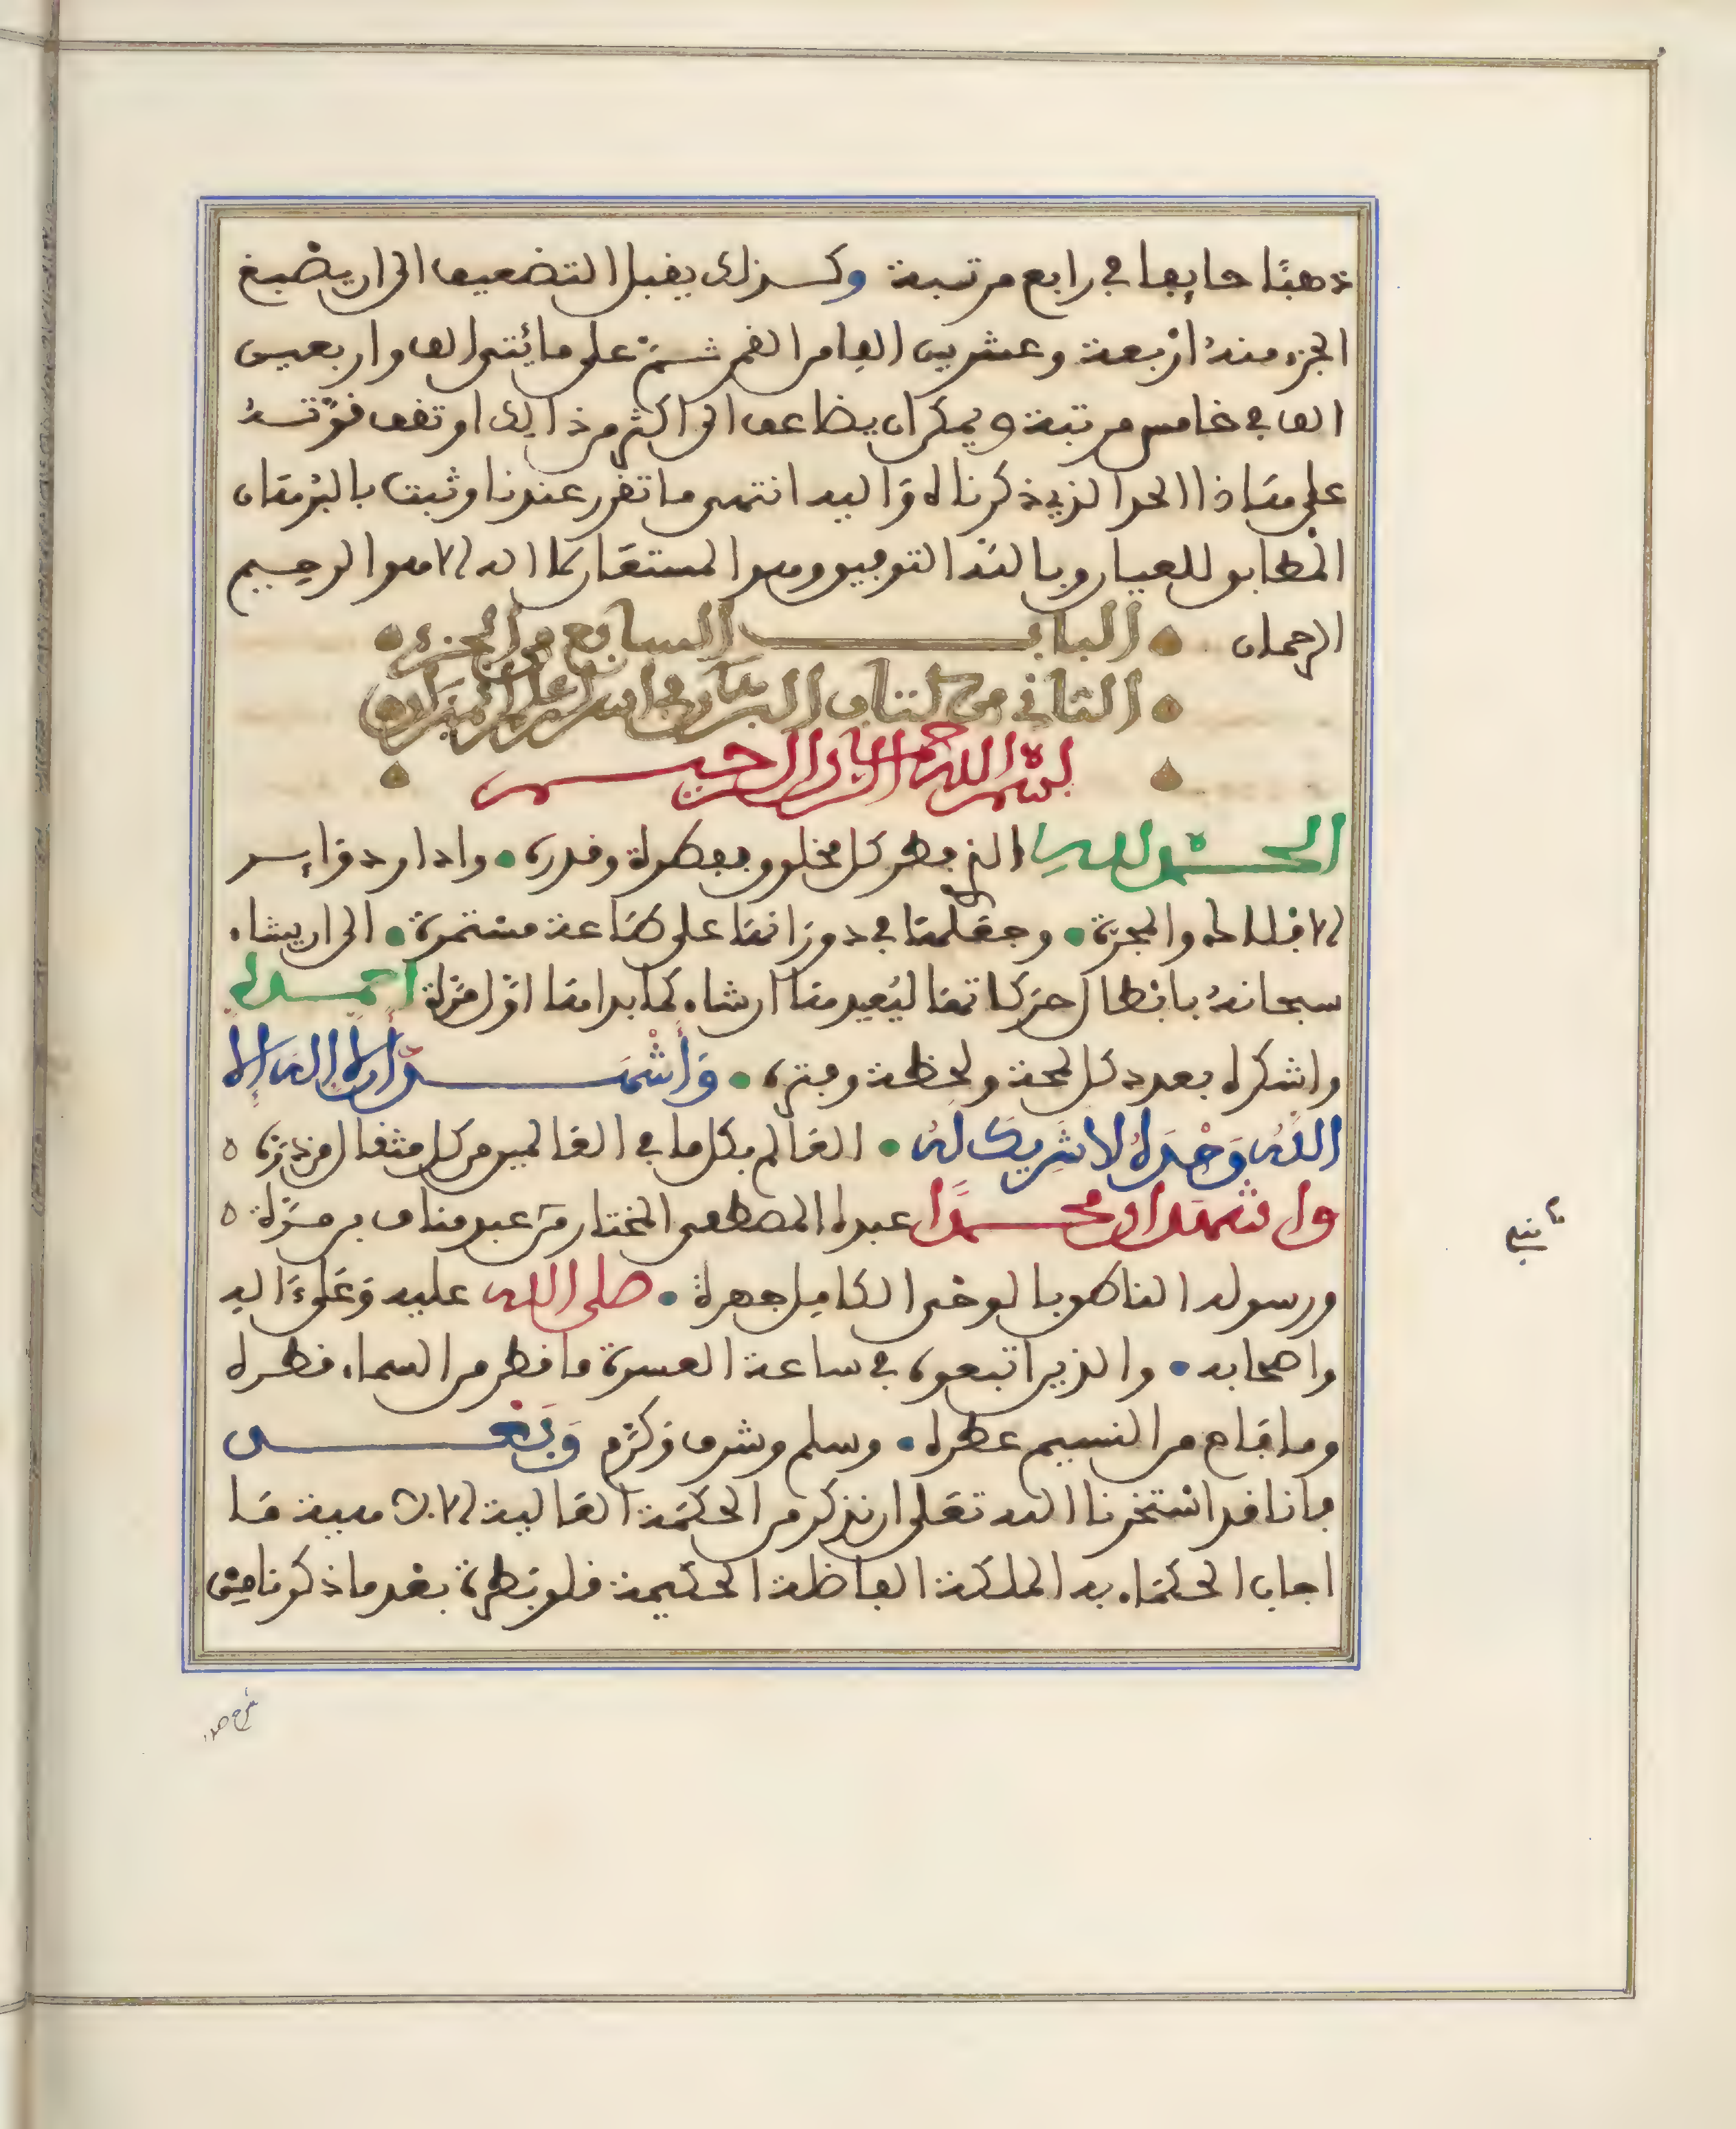 ذهبًا حايفا في رابع مرتبة وكذلك يقبل التضعيف الى ان يصبغ
الجزء منهُ اربعة وعشرين الفا من القمر شمسًا على مائتى الف واربعين
الف في خامس مرتبة ويمكن ان يضاعف الى اكثر من ذالك او تقف قوّتهُ
على هاذا الحد الذي ذكرناه واليه انتهى ما تقرر عندنا وثبت بالبرهان
المطابق للعيان وبالله التوفيق وهو المستعان لا اله الا هو الرحيم
الرحمان • البـاب السابع من الجزء •
• الثاني من كتاب البرهان في اسرار علم الميزان
بسم الله الرحمان الرحيم
الحمد لله الذي فطر كل مخلوق بفطرة وقدره • وادار دواير
الافلاك والمجرّة • وجعلها في دورانها على طاعة مستمرة • الى ان يشاء
سبحانهُ بابطال حركاتها ليُعيدها ان شاء كما بداها اوّل مرّة احمده
واشكره بعدد كل لمحة ولحظة وفتره • وَأشْهَد أن لا إله إلا
اللهُ وَحْدَهُ لا شَرِيك لهُ • العالم بكل ما في العالمين من كل مثقال من ذره ٥
واشهد ان محمدًا عبده المصطفى المختار من عبد مناف بن مرّة ٥
ورسوله الناطق بالوحي الكامل جهرة • صلى الله عليه وعلىءاله
واصحابه • والذين اتبعوه في ساعة العسرة ما قطر من السماء قطره
وما فاح من النسيم عطره • وسلم وشرف وكرّم وَبَعْـد
فانا قد استخرنا الله تعلى ان نذكر من الحكمة العالية الالاهية ما
اجاب الحكماء به الملكة الفاضلة الحكيمة فلوبطرة بعد ما ذكرنا مِن